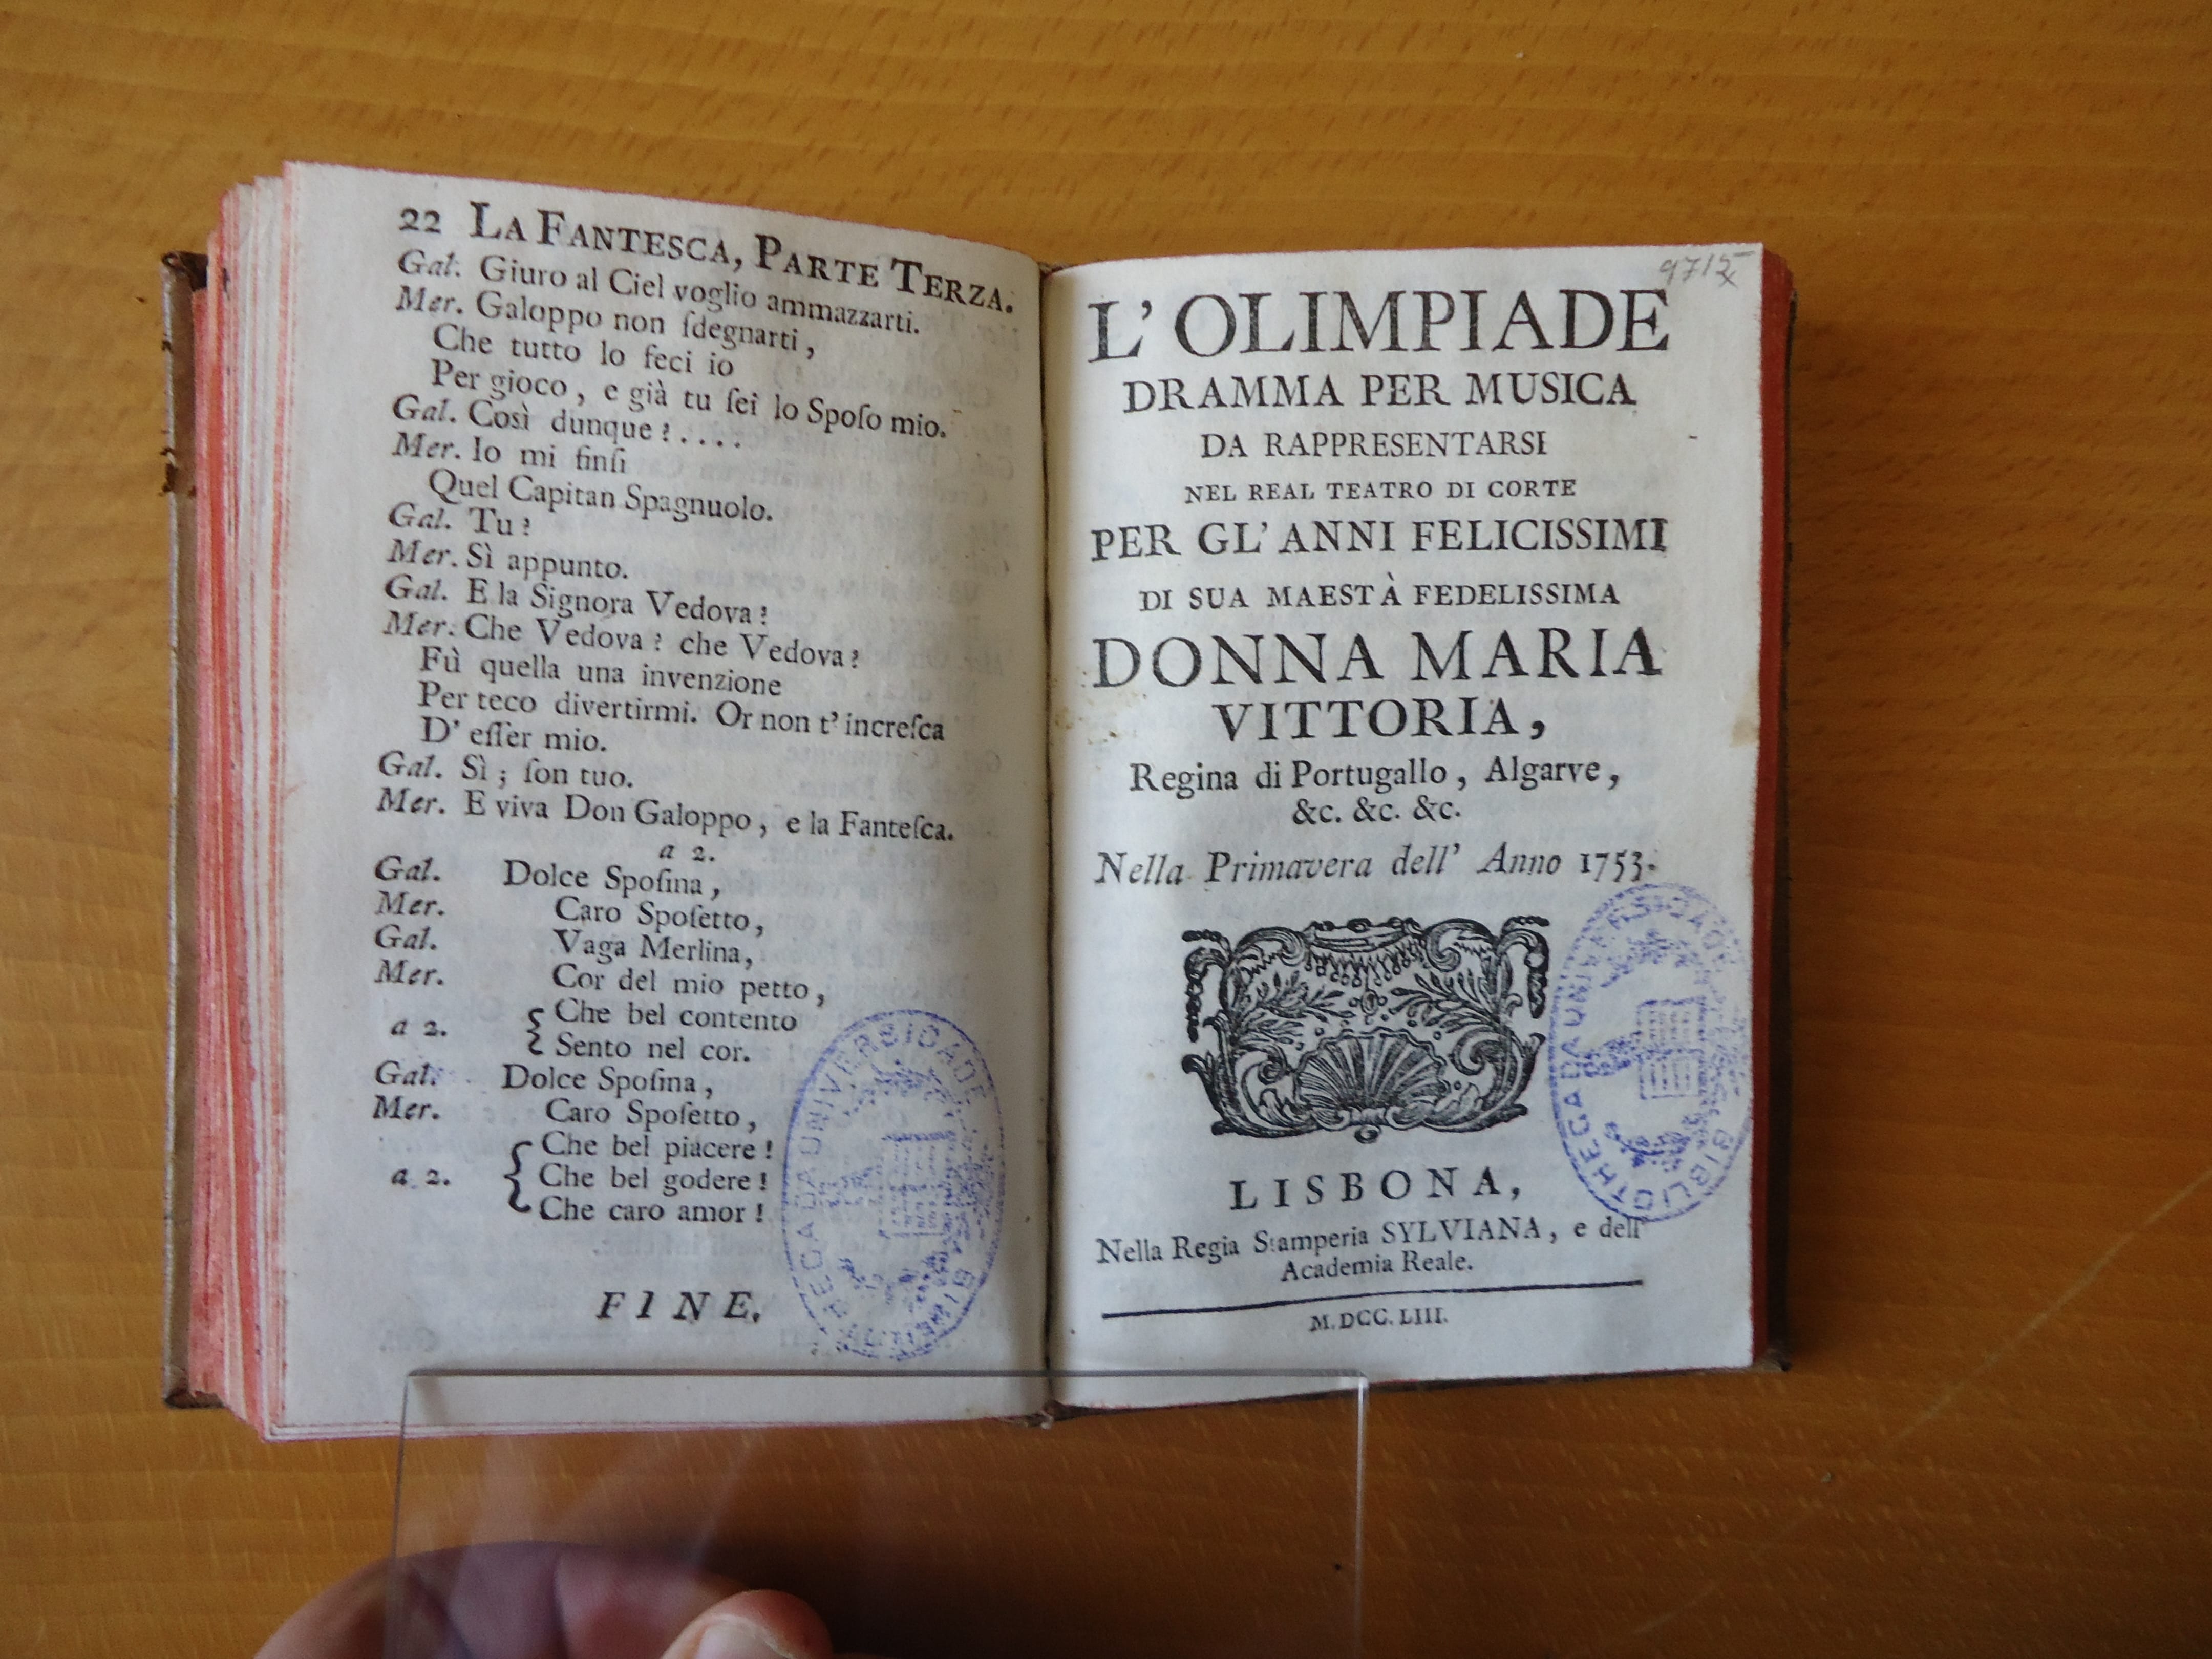 22 LA FANTESCA, PARTE TERZA.
Gal. Giuro al Ciel voglio ammazzarti.
Mer. Galoppo non ſdegnarti,
Che tutto lo feci io
Per gioco, e già tu ſei lo Spoſo mio.
Gal. Così dunque?....
Mer. Io mi finſi
Quel Capitan Spagnuolo.
Gal. Tu?
Mer. Sì appunto.
Gal. E la Signora Vedova?
Mer. Che Vedova? che Vedova?
Fù quella una invenzione
Per teco divertirmi. Or non t' increſca
D' eſſer mio.
Gal. Sì; ſon tuo.
Mer. E viva Don Galoppo, e la Fanteſca.
a 2.
Gal. Dolce Spoſina,
Mer. Caro Spoſetto,
Gal. Vaga Merlina,
Mer. Cor del mio petto,
a 2. { Che bel contento
Sento nel cor.
Gal. Dolce Spoſina,
Mer. Caro Spoſetto,
a 2. { Che bel piacere!
Che bel godere!
Che caro amor!
FINE.
BIBLIOTHECA DA UNIVERSIDADE
9715
L'OLIMPIADE
DRAMMA PER MUSICA
DA RAPPRESENTARSI
NEL REAL TEATRO DI CORTE
PER GL' ANNI FELICISSIMI
DI SUA MAESTÀ FEDELISSIMA
DONNA MARIA
VITTORIA,
Regina di Portugallo, Algarve,
&c. &c. &c.
Nella Primavera dell' Anno 1753.
BIBLIOTHECA DA UNIVERSIDADE
LISBONA,
Nella Regia Stamperia SYLVIANA, e dell'
Academia Reale.
M.DCC.LIII.